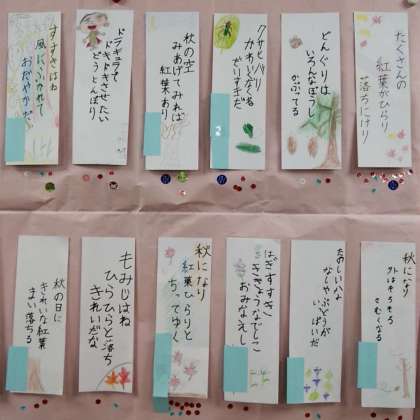 たくさんの
紅葉がひらり
落ちにけり
どんぐりは
いろんなぼうし
かぶってる
かわいくなく
ぜいりきだ
秋の空
みあげてみれば
紅葉あり
ドラキュラで
ドキドキさせたい
どうとんぼり
すすきはね
風にふかれて
おだやかだ
秋になり
外はそろそろ
さむくなる
たのしいな
なしやぶどうが
いっぱいだ
はぎすすき
ききょうなでしこ
おみなえし
秋になり
紅葉ひらりと
ちってゆく
もみじはね
ひらひらと落ち
きれいだな
秋の日に
きれいな紅葉
まい落ちる